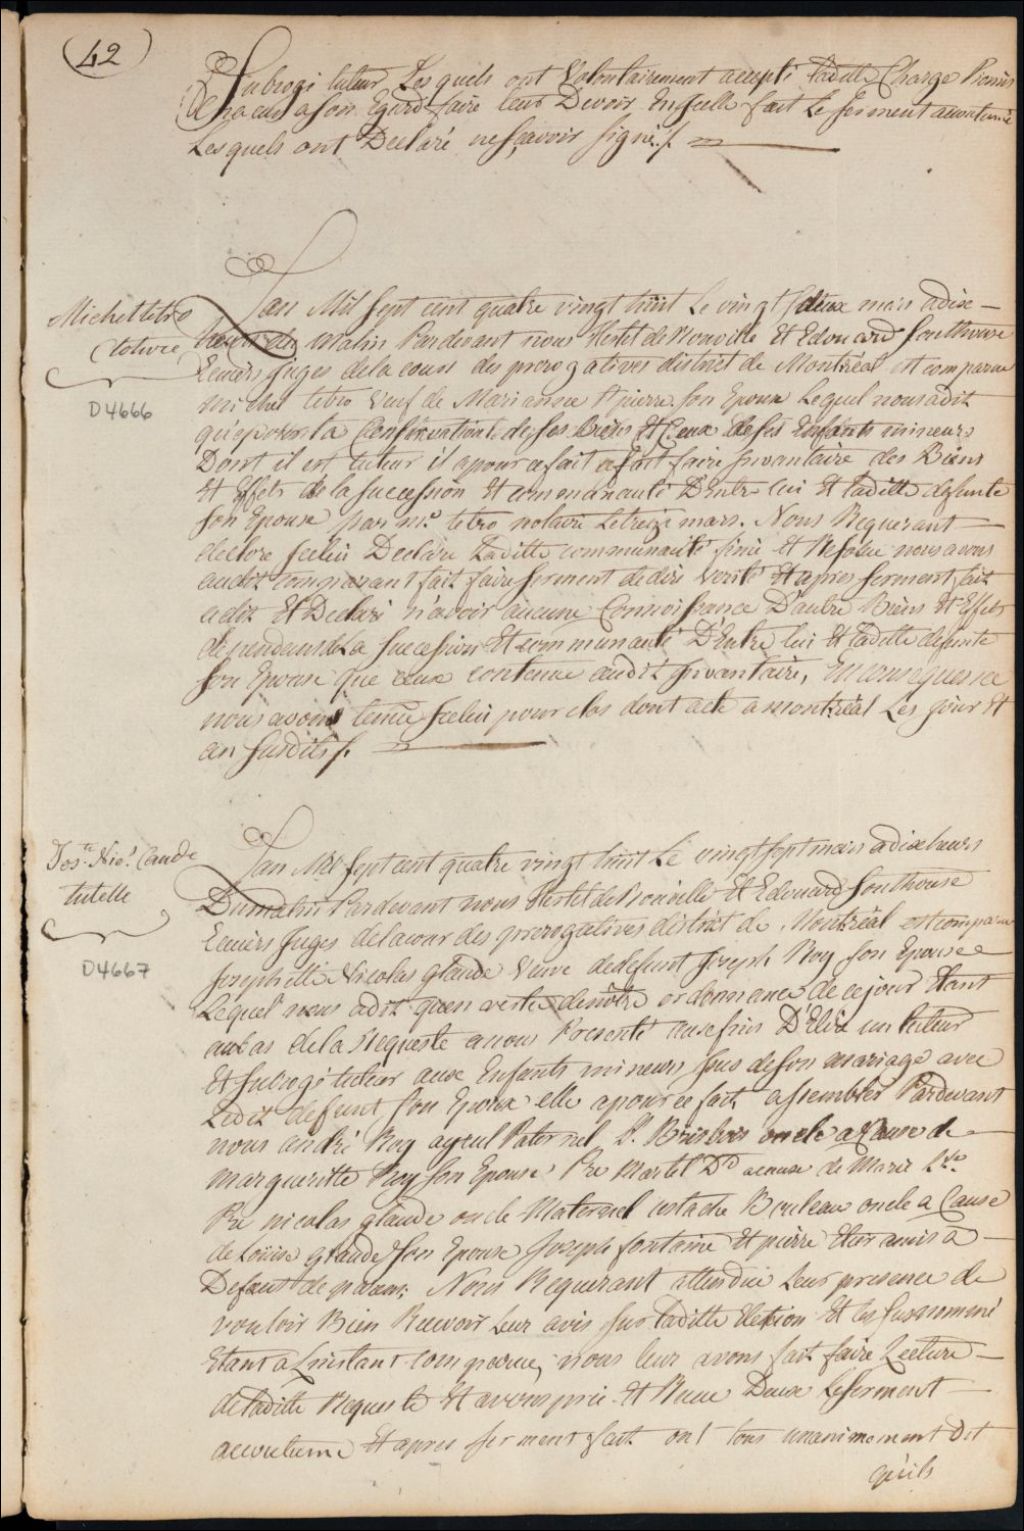 42
Subrogé tuteur Lesquels ont Volontairement accepté laditte Charge Promis
Chacun a son Egard faire leur Devoir En Icelle fait Le serment accoutumé
Lesquels ont Declaré ne sçavoir signé ./.
Michel tetro
Cloture
D4666
L'an Mil sept cent quatre vingt huit Le vingt deux mars a dix
heures du matin Pardevant nous Hertel de Rouville Et Edouard Southouse
Ecuiers Juges de la cour des prerogatives district de Montréal est comparu
michel tetro veuf de Marianne St pierre son Epouse Lequel nous a dit
qu'epour la Conservation de ses biens Et Ceux de ses Enfants mineurs
Dont il est tuteur il a pour ce fait faire Inventaire des Biens
Et Effets de la succession Et communauté D'Entre lui Et laditte defunte
son Epouse par mr. tetro notaire Le treize mars. Nous Requerant
declore Icelui Declare Laditte communauté finie Et Resolue nous avons
audit comparant fait faire serment de dire verité Et apres serment fait
a dit Et Declaré n'avoir aucune Connoissance D'autre Biens Et Effets
dependans de La succession Et communauté D'Entre lui Et laditte defunte
son Epouse que ceux contenue audit Inventaire, En consequence
nous avons tenue Icelui pour clos dont acte a montréal Les jour Et
an susdits ./.
Jos.te Nic.s Claude
tutelle
D4667
L'an Mil sept cent quatre vingt huit Le vingt sept mars a dix heures
Du matin Pardevant nous Hertel de Rouville Et Edouard Southouse
Ecuiers Juges de la cour des prerogatives district de Montréal est comparue
Josephette Nicolas glaude veuve de defunt Joseph Roy son Epouse
Lequel nous a dit qu'en vertu de notre ordonnance de ce jour Etant
au bas de la Requeste a nous Presenté aux fins D'Elire un tuteur
Et subrogé tuteur aux Enfants mineurs Issus de son mariage avec
Ledit defunt son Epoux elle a pour ce fait assembler Pardevant
nous andré Roy ayeul Paternel, Brisbois oncle a Cause de
margueritte Roy son Epouse Pre Martel Do a cause de Marie
Pre nicolas glaude oncle Maternel eustache Bruleau oncle a Cause
de Louise glaude son Epouse Joseph fontaine Et pierre amis a
Defaut de parans, Nous Requerant attendue Leur presence de
vouloir Bien Recevoir Leur avis sur laditte Election Et les susnommé
Etant a L'instant comparue, nous leur avons fait faire Lecture
de laditte Requeste Et avons pris Et Reçue Deux Le serment
accoutumé Et apres serment fait ont tous unanimement Dit
qu'ils